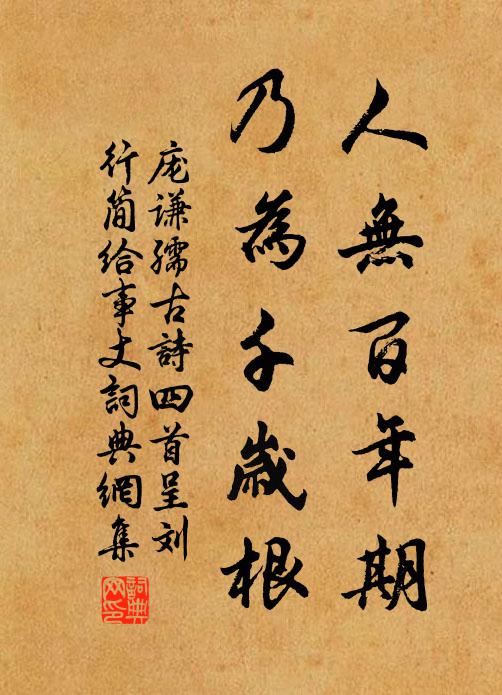 人無百年期
乃為千歲根
庞谦孺古詩四首呈刘
行简给事丈詞典網集
詞典網印